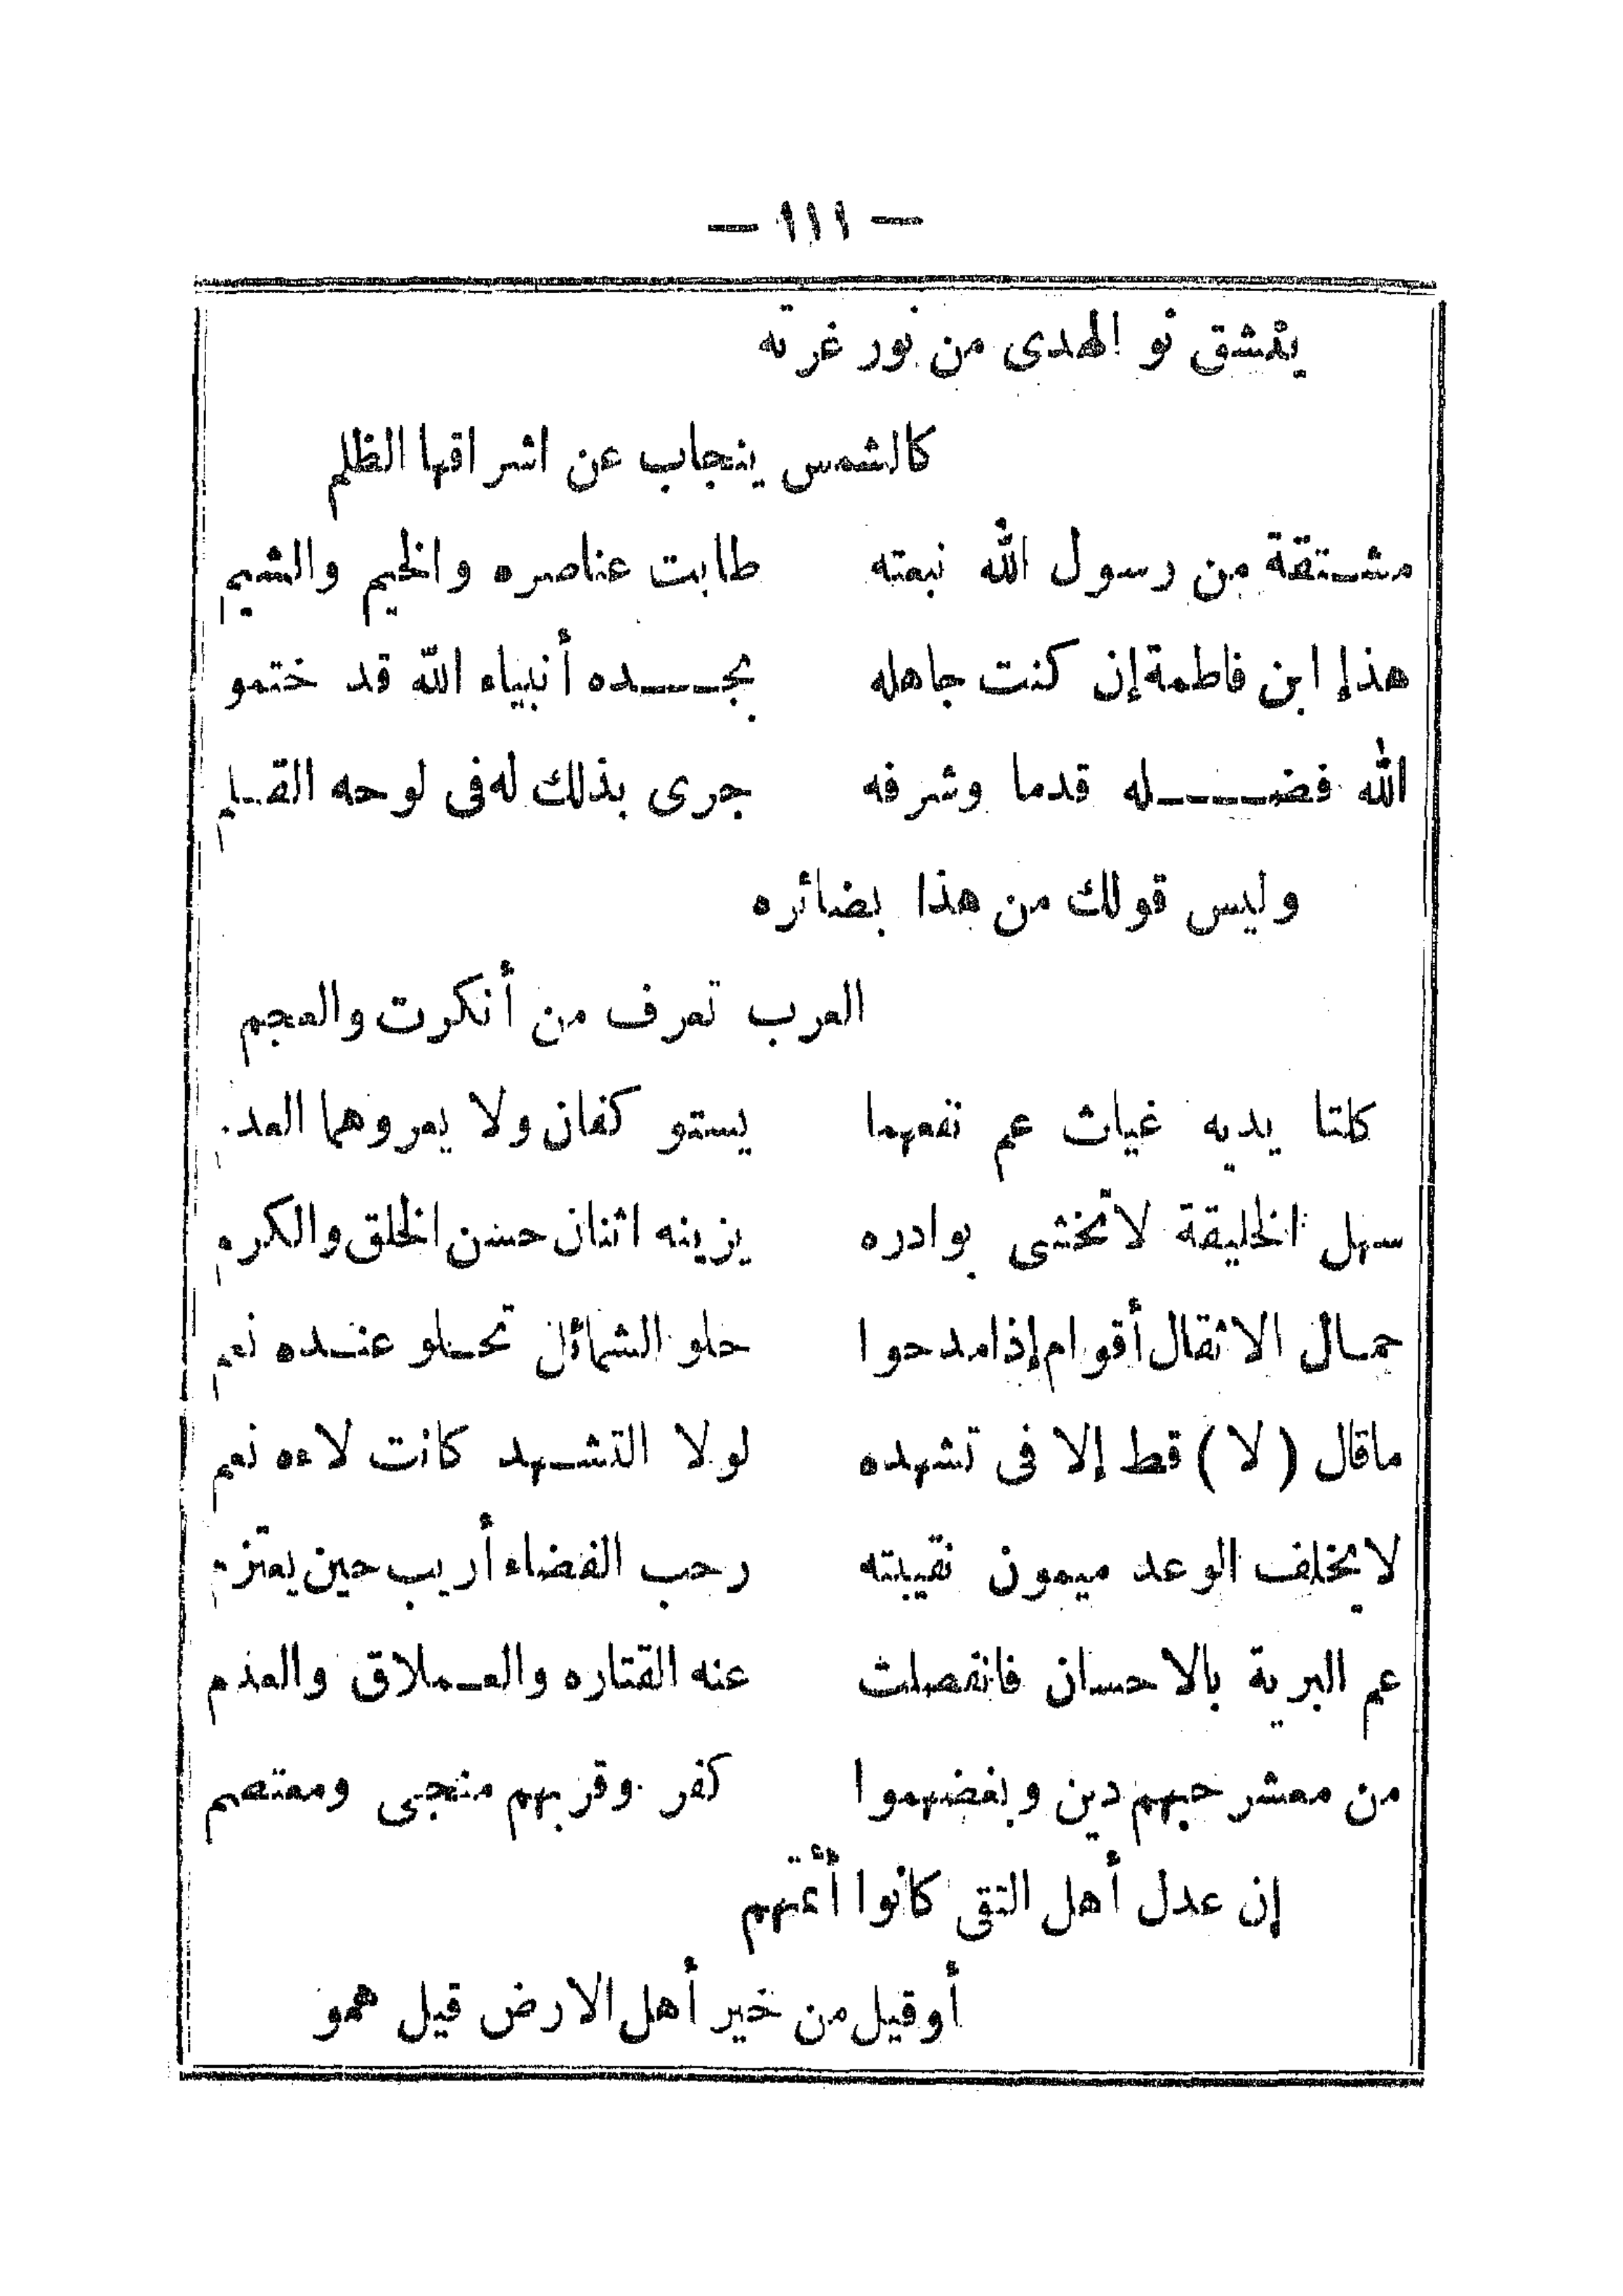 — ١١١ —
ينشق نو الهدى من نور غرته
كالشمس ينجاب عن اشراقها الظلم
مشتقة من رسول الله نبعته طابت عناصره والخيم والشيم
هذا ابن فاطمة إن كنت جاهله بجده أنبياء الله قد ختمو
الله فضله قدما وشرفه جرى بذلك له فى لوحه القلم
وليس قولك من هذا بضائره
العرب تعرف من أنكرت والعجم
كلتا يديه غياث عم نفعهما يستو كفان ولا يعروهما العد
سهل الخليقة لا تخشى بوادره يزينه اثنان حسن الخلق والكرم
حمال الاثقال أقوام إذا مدحوا حلو الشمائل تحلو عنده نعم
ماقال (لا) قط إلا فى تشهده لولا التشهد كانت لاءه نعم
لا يخلف الوعد ميمون نقيبته رحب الفضاء أريب حين يعتز
عم البرية بالاحسان فانفصلت عنه القتاره والعملاق والعدم
من معشر حبهم دين وبغضهموا كفر وقربهم منجى ومعتصم
إن عدل أهل التقى كانوا أئمتهم
أو قيل من خير أهل الارض قيل همو